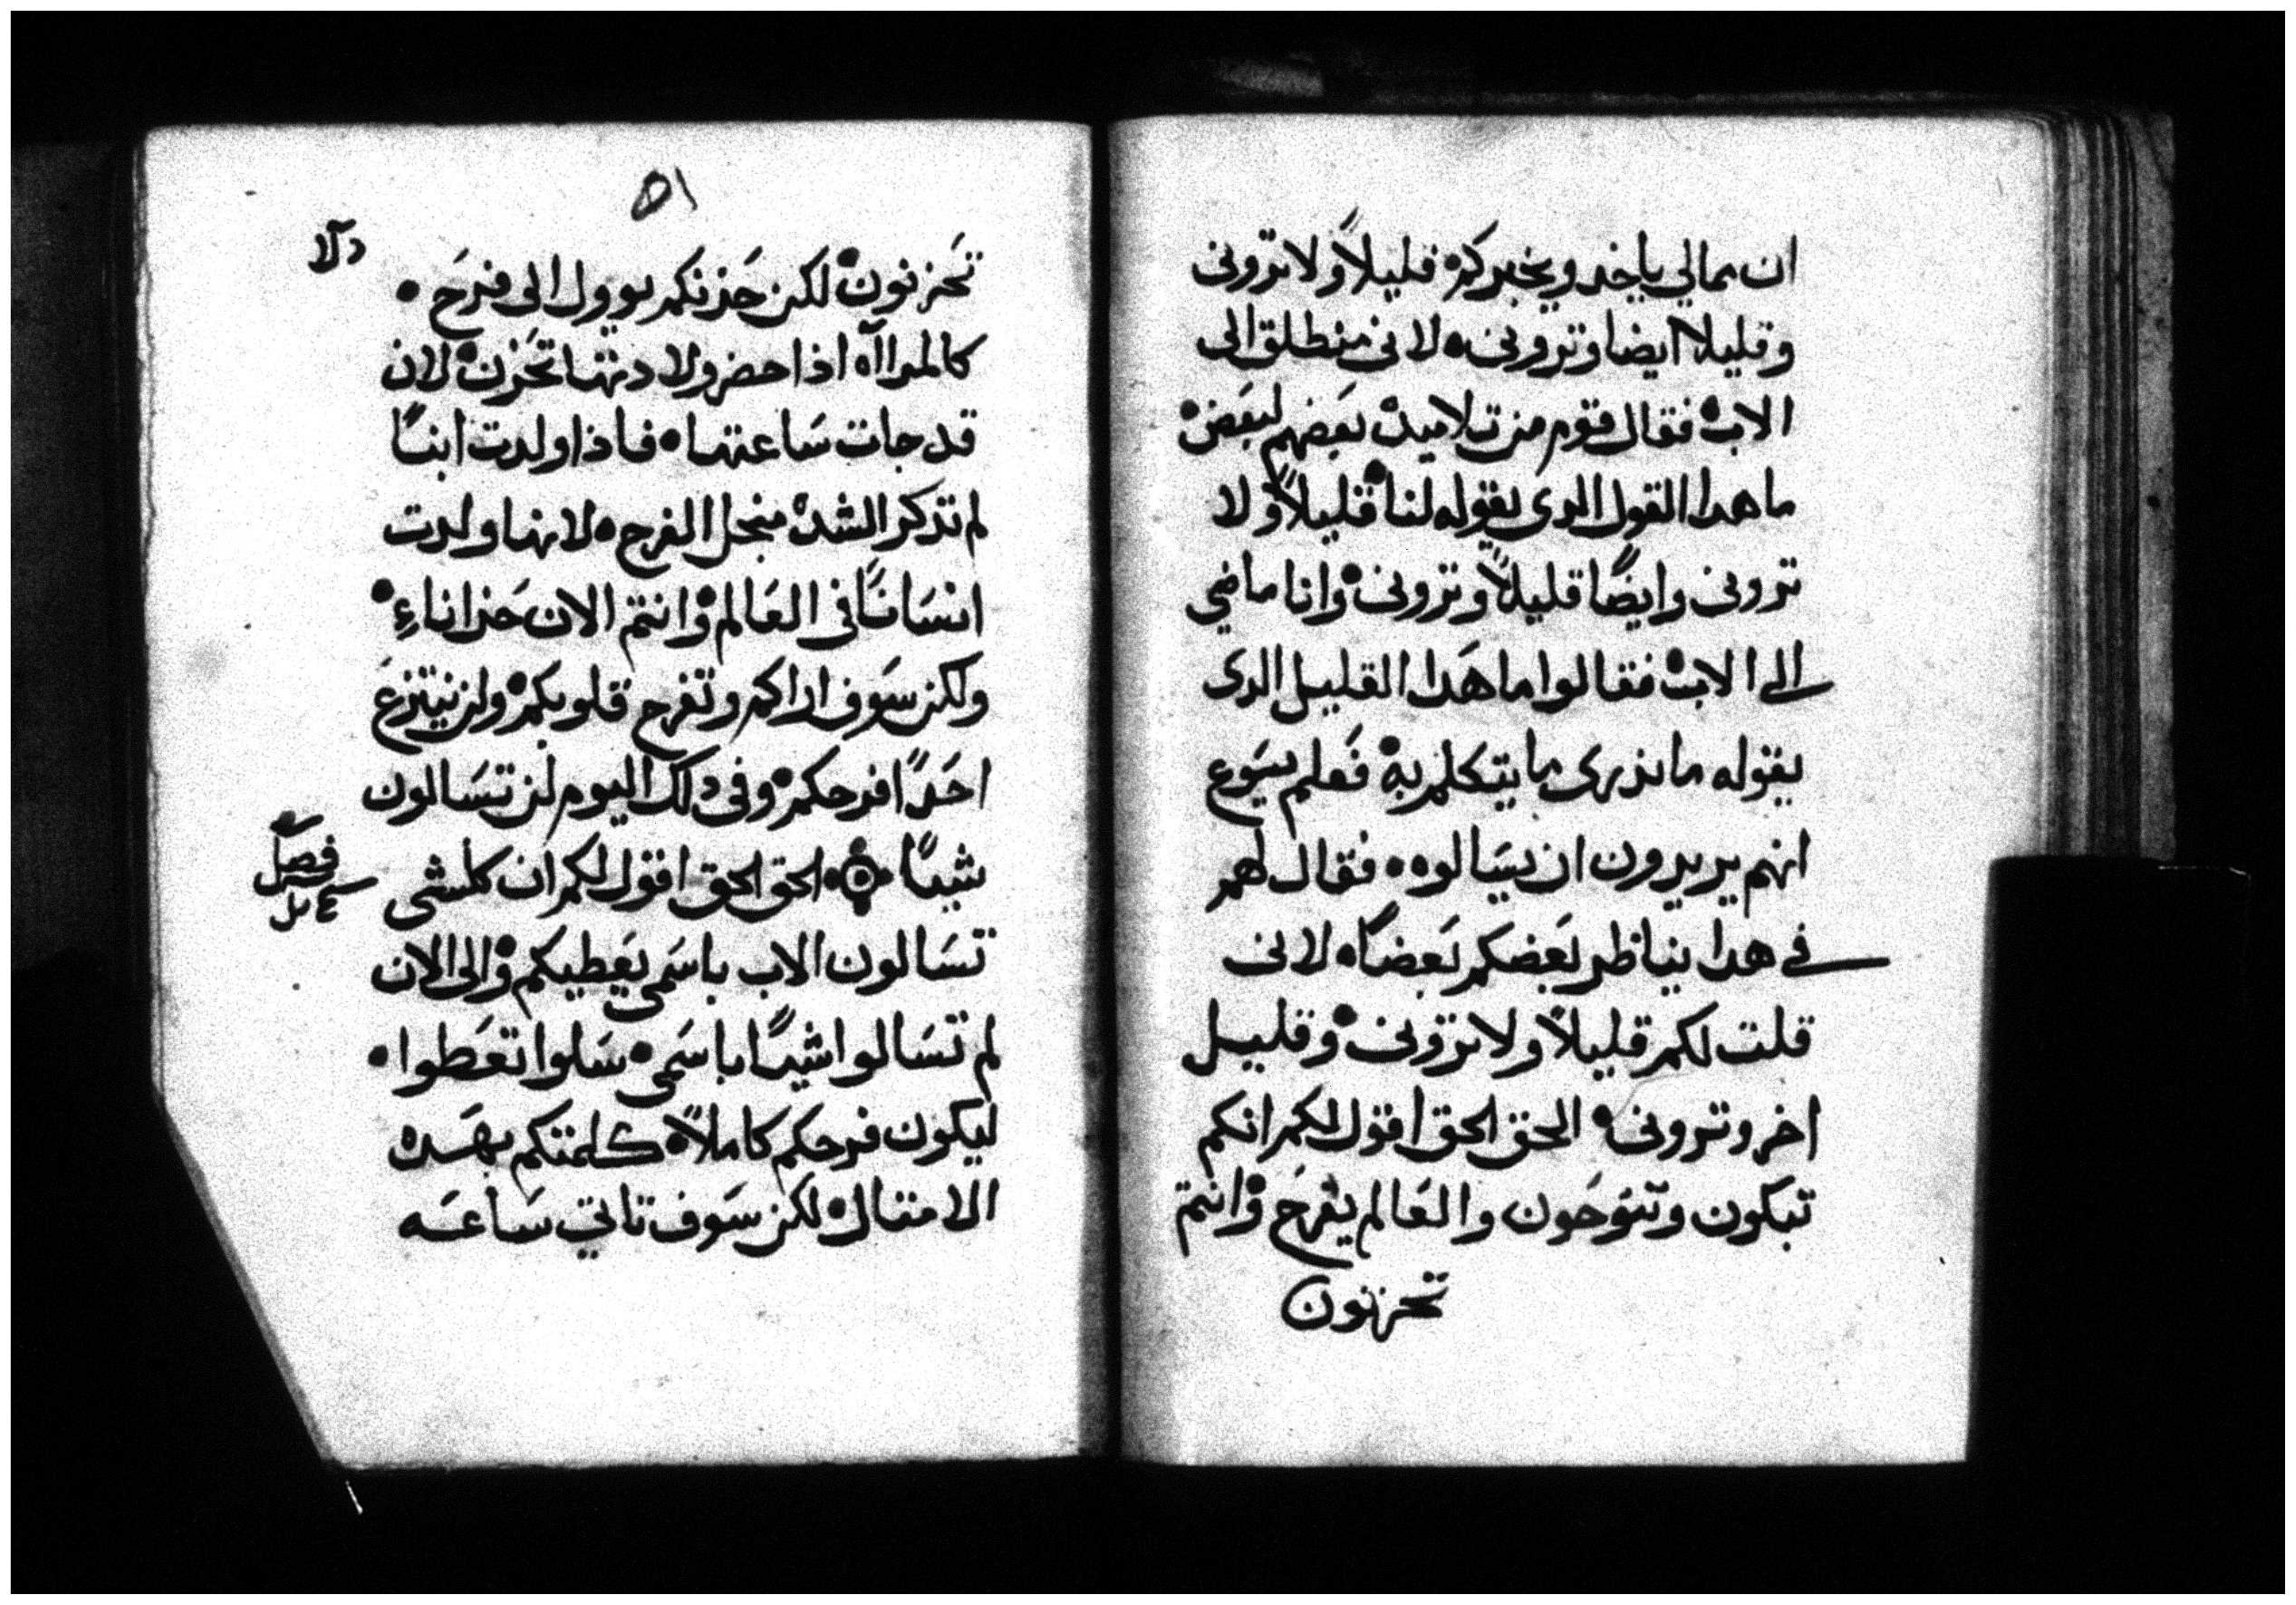 ان بمالي ياخد ويخبركم قليلاً ولا تروني
وقليلا ايضا وتروني لاني منطلق الى
الاب فقال قوم من تلاميده بعَضهم لبعَض
ما هدا القول الدى يقوله لنا قليلاً ولا
تروني وايضًا قليلاً وتروني وانا ماضي
الى الاب فقالوا ما هَدا القليل الدى
يقوله ما ندرى ما يتكلم به فَعلم يسَوع
انهم يريدون ان يسَالوه فقال لهم
في هدا يناظر بَعضكم بَعضاً لاني
قلت لكم قليلاً ولا تروني وقليل
اخر وتروني الحق الحق اقول لكم انكم
تبكون وتنوَحون والعَالم يفرَح وانتم
تحزنون
٥١
تحَزنون لكن حَزنكم يوول الى فرَح
كالمراآه اذا حضر ولادتها تحَزن لان
قد جات سَاعتها فاذا ولدت ابنًا
لم تذكر الشده منجل الفرح لانها ولدت
انسَانًا فى العَالم وانتم الان حَزاناءِ
ولكن سَوف اراكم وتفرح قلوبكم ولن ينتزعَ
احَدًا فرحكم وفى دلك اليوم لن تسَالون
شيًا الحق الحق اقول لكم ان كلشى
فصل
تسَالون الاب باسَمى يعَطيكم والى الان
لم تسَالوا شيًا باسَمى سَلوا تعَطوا
ليكون فرحكم كاملاً كلمتكم بهَده
الامتال لكن سَوف تاتي سَاعَه